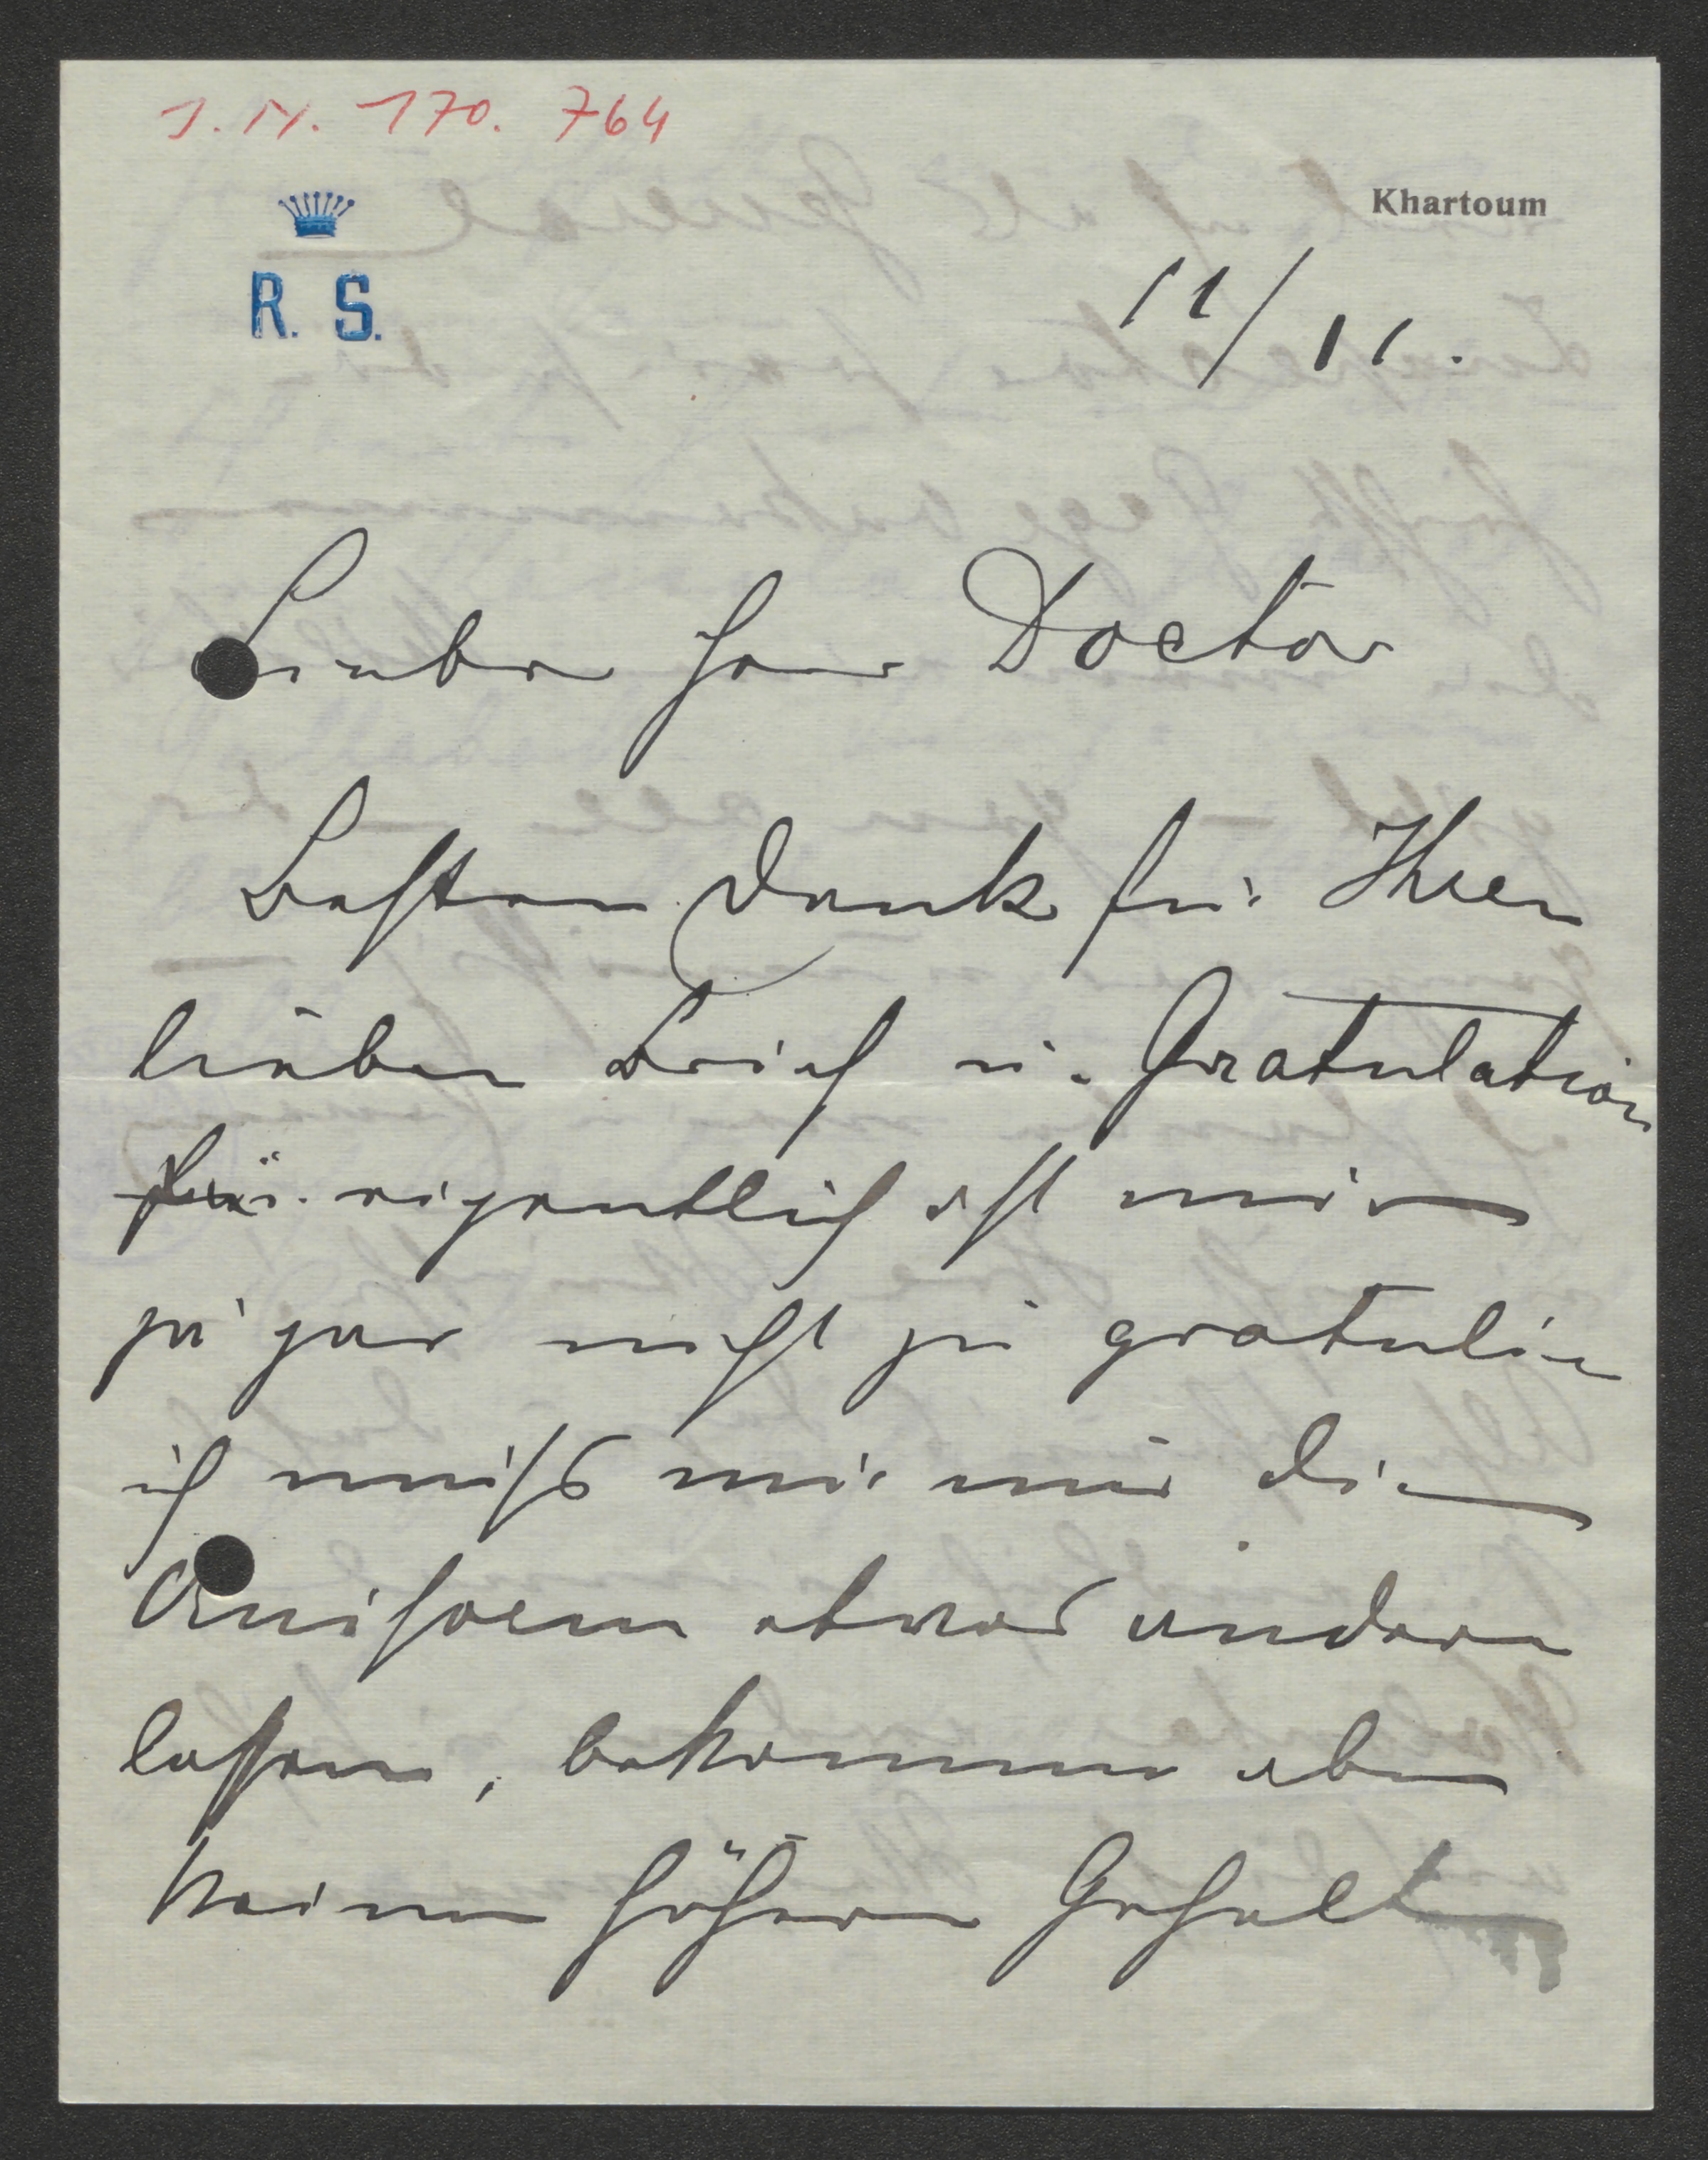 J. N. 170. 764
R. S.
Khartoum
11/11.
Lieber Herr Doctor
Besten Dank für Ihren
lieben Brief u. Gratulation
für. eigentlich ist mir
ja gar nicht zu gratulieren
ich muß mir nur die
Uniform etwas ändern
lassen, bekomme aber
keinen höheren Gehalt